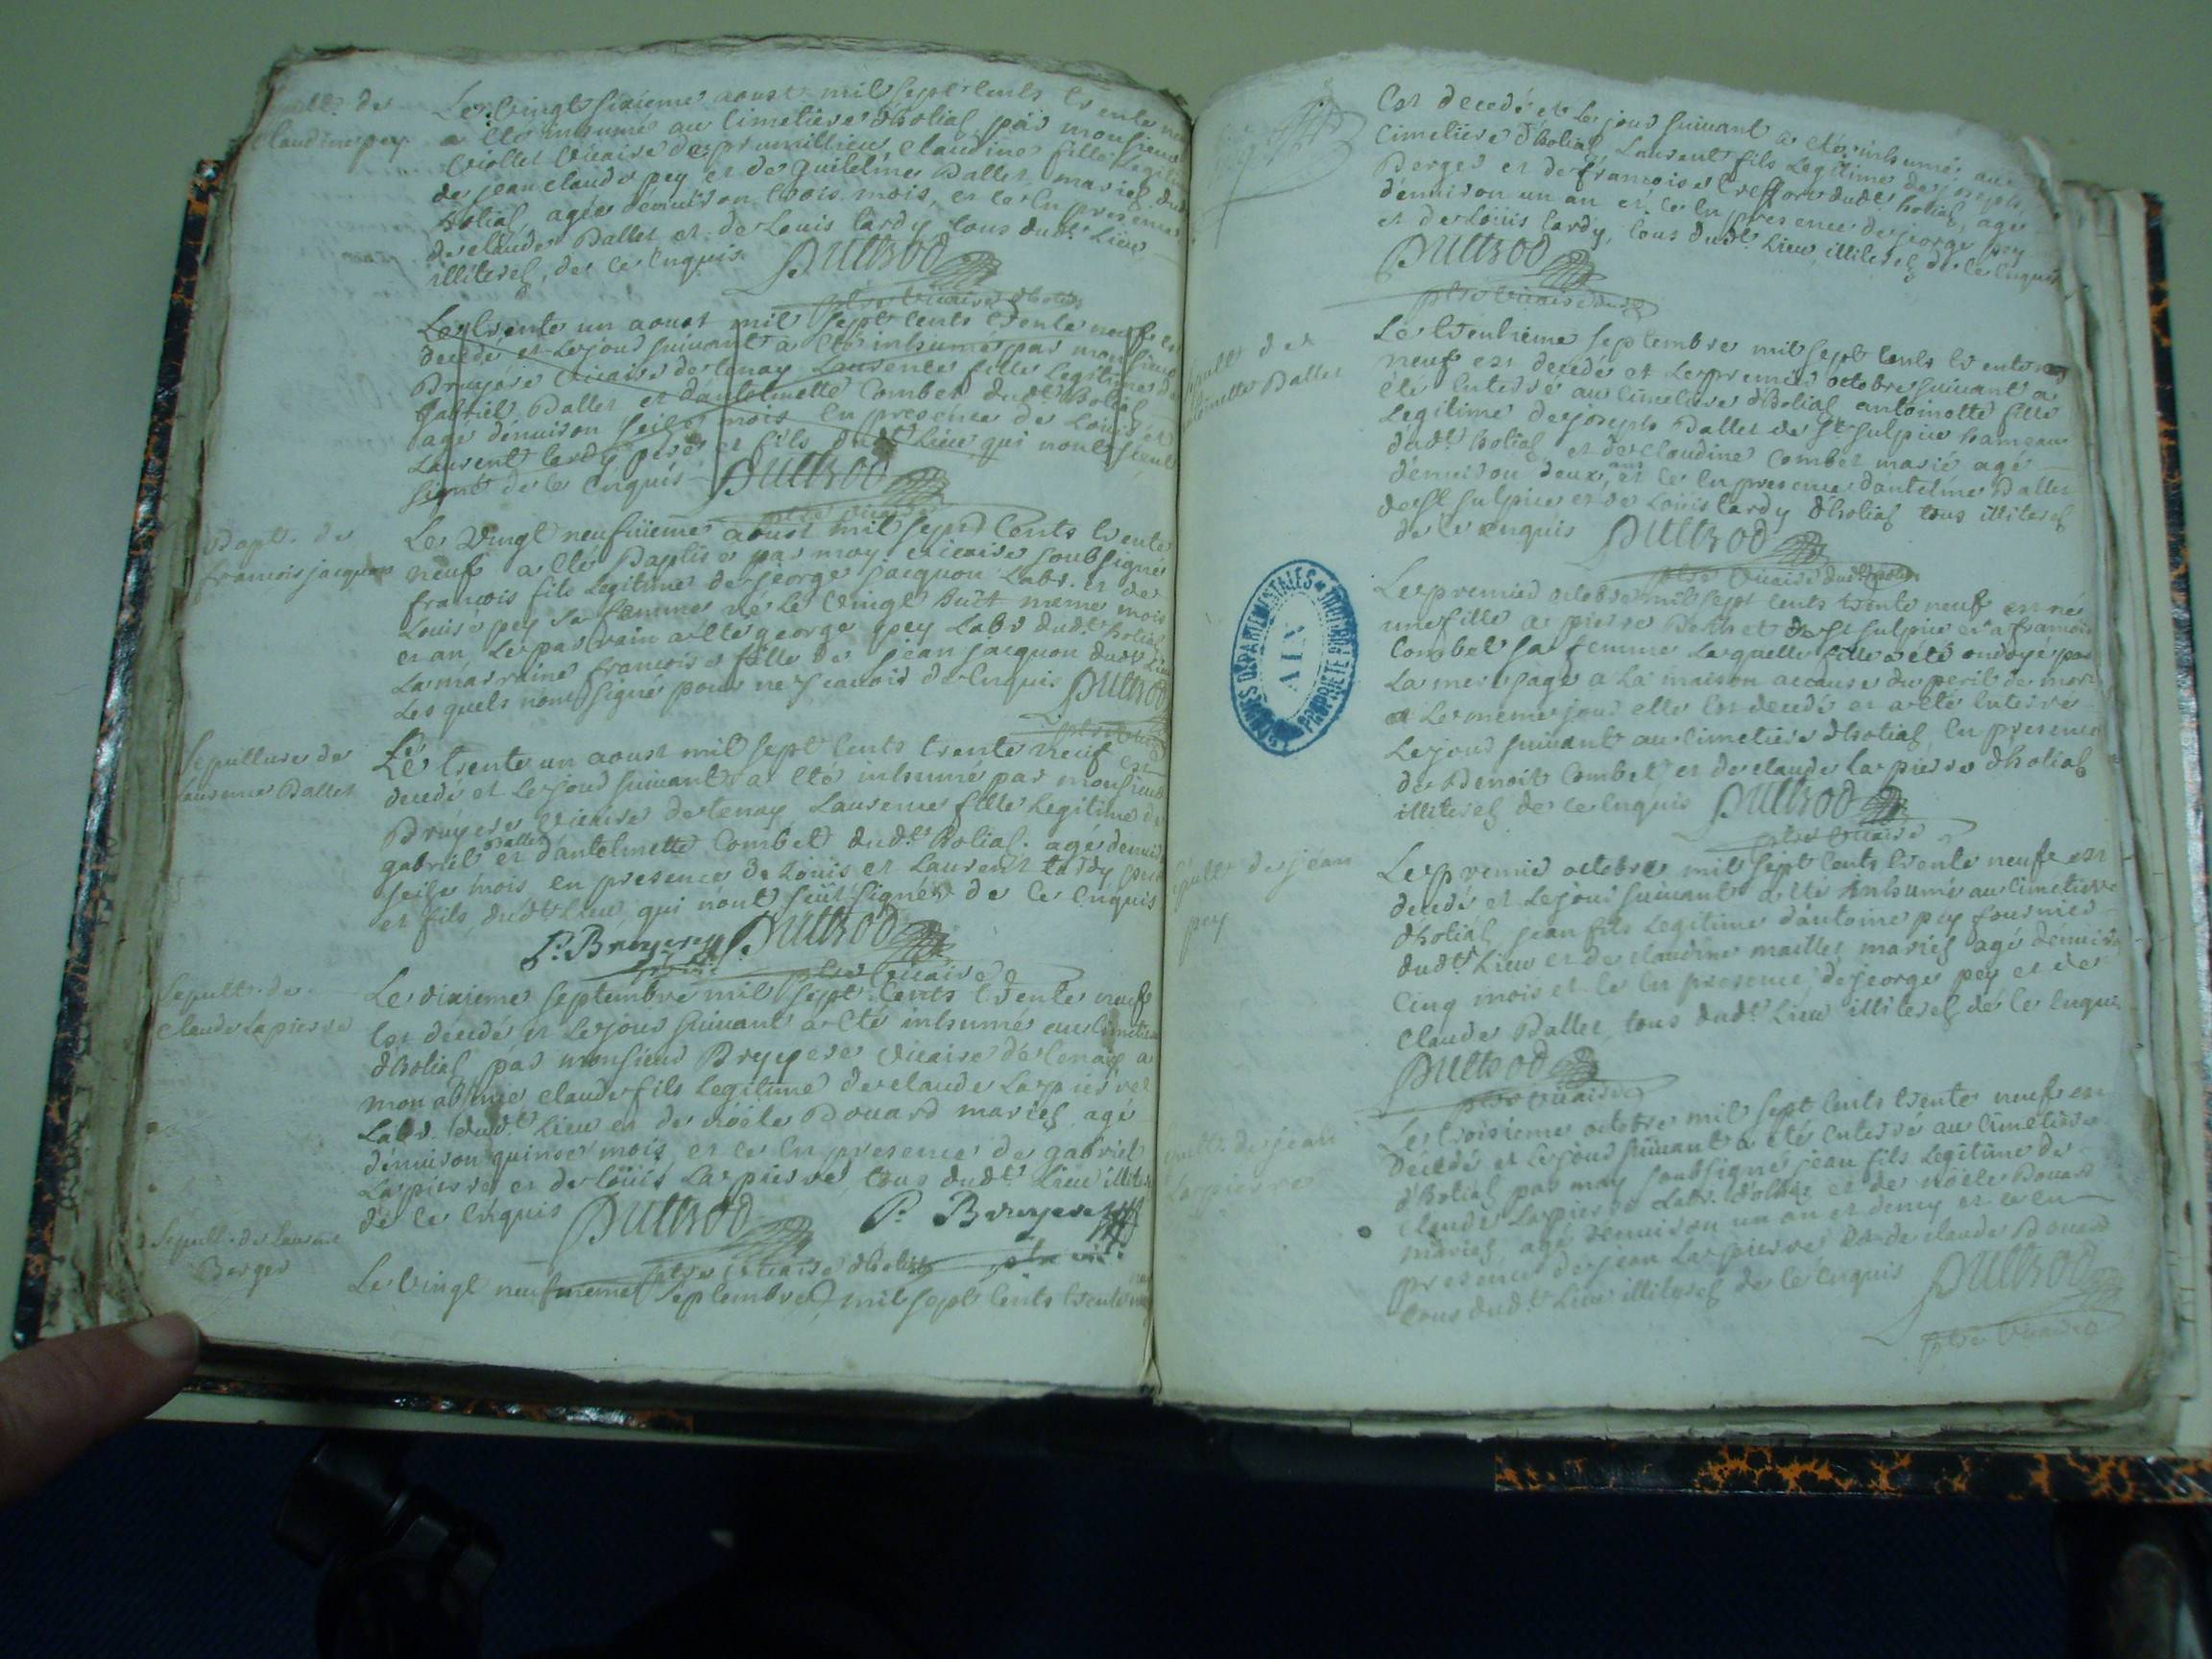 sepult. de
Claudine pey
Le vingt sixieme aoust mil sept cents trente
a eté inhumé au Cimetiere d'hotias par monsieur
Viollet Vicaire de prumillieu, Claudine fille Legitime
de jean claude pey et de guilelme Ballet mariés dud.t
hotias, agée d'enuiron trois mois, et ce en presence
de claude Ballet et de Louis tardy tous dud.t Lieu
illiterés, de ce enquis. Dultrod
ptre Vicaire d'hotias
Le trente un aoust mil sept cents trente neuf est
decedé et le jour suiuant a eté inhumé par monsieur
Bruyere Vicaire de tenay Laurence fille Legitime de
gabriel Ballet et d'antelmette Combet dud.t hotias
agé d'enuiron seise mois en presence de Louis et
Laurent tardy pere et fils dud.t Lieu qui n'ont sceut
signé de ce enquis Dultrod
ptre vicaire
Bapt. de
francois jacquon
Le Vingt neufuieme aoust mil sept Cents trente
neuf a eté Baptisé par moy vicaire soubsigné
francois fils Legitime de george jacquon Labr. et de
Louise pey sa femme né le Vingt huit meme mois
et an, Le parrain a eté george pey Labr dud.t hotias
La marraine francoise fille de jean jacquon dud.t Lieu
Les quels n'ont signé pour ne sçauoir de enquis Dultrod
ptre vicaire
Sepulture de
Laurence Ballet
Le trente un aoust mil sept cents trente neuf est
decedé et le jour suiuant a eté inhumé par monsieur
Bruyere Vicaire de tenay Laurence fille Legitime de
gabriel Ballet et d'antelmette Combet dud.t hotias. agé d'enuiron
seise mois en presence de Louis et Laurent tardy pere
et fils, dud.t Lieu, qui n'ont sceut signér de ce enquis
P. Bruyere Dultrod
ptre vic. ptre Vicaire
Sepult. de
Claude Lapierre
Le dixieme septembre mil sept Cents trente neuf
est decedé et le jour suiuant a eté inhumé au Cimetiere
d'hotias par monsieur Bruyere Vicaire de tenay a
mon absence claude fils Legitime de claude Lapierre
Labr. dud.t Lieu et de noële Douard mariés agé
d'enuiron quinse mois, et ce en presence de gabriel
Lapierre et de Louis Lapierre, tous dud.t Lieu illiterés
de ce enquis Dultrod P. Bruyere
ptre Vicaire d'hotias ptre vic.
Sepult. de Laurent
Berger
Le Vingt neufuieme septembre mil sept cents trente neuf
Est decedé et le jour suiuant a eté inhumé au
Cimetiere d'hotias Laurent fils Legitime de joseph
Berger et de francoise treffort dud.t hotias, agé
d'enuiron un an et ce en presence de george pey
et de Louis tardy, tous dud.t Lieu illiterés de ce enquis
Dultrod
ptre Vicaire dud.
sepult de
antoinette Ballet
Le trentieme septembre mil sept cents trente
neuf est decedé et le premier octobre suiuant a
eté enterré au cimetiere d'hotias antoinette fille
Legitime de joseph Ballet de St sulpice hameau
dud.t hotias, et de Claudine Combet marié agé
d'enuiron deux ans, et ce en presence d'antelme Ballet
de St sulpice et de Louis tardy d'hotias tous illiterés
de ce enquis Dultrod
ptre Vicaire dud. hotias
Le premier octobre mil sept cents trente neuf est né
une fille a pierre de St sulpice et a francoise
Combet sa femme Laquelle fille a eté ondoyé par
La mere sage a La maison a cause du peril de mort
et Le meme jour elle est decedé et a eté enterré
Le jour suiuant au cimetiere d'hotias, en presence
de Benoit Combet et de claude Lapierre d'hotias
illiterés de ce enquis Dultrod
ptre Vicaire
sepult de jean
pey
Le premier octobre mil sept cents trente neuf est
decedé et le jour suiuant a eté inhumé au cimetiere
d'hotias jean fils Legitime d'antoine pey fournier
dud.t Lieu et de claudine maillet mariés agé d'enuiron
Cinq mois et ce en presence de george pey et de
Claude Ballet, tous dud.t Lieu illiterés de ce enquis
Dultrod
ptre Vicaire
sepult. de jean
Lapierre
Le troisieme octobre mil sept cents trente neuf est
decedé et le jour suiuant a eté enterré au cimetiere
d'hotias par moy soubsigné jean fils Legitime de
Claude Lapierre Labr. d'hotias et de noële Douard
mariés, agé d'enuiron un an et demy et ce en
presence de jean Lapierre et de claude Douard
tous dud.t Lieu illiterés de ce enquis Dultrod
ptre Vicaire
ARCHIVES DEPARTEMENTALES
AIN
PROPRIETE PUBLIQUE